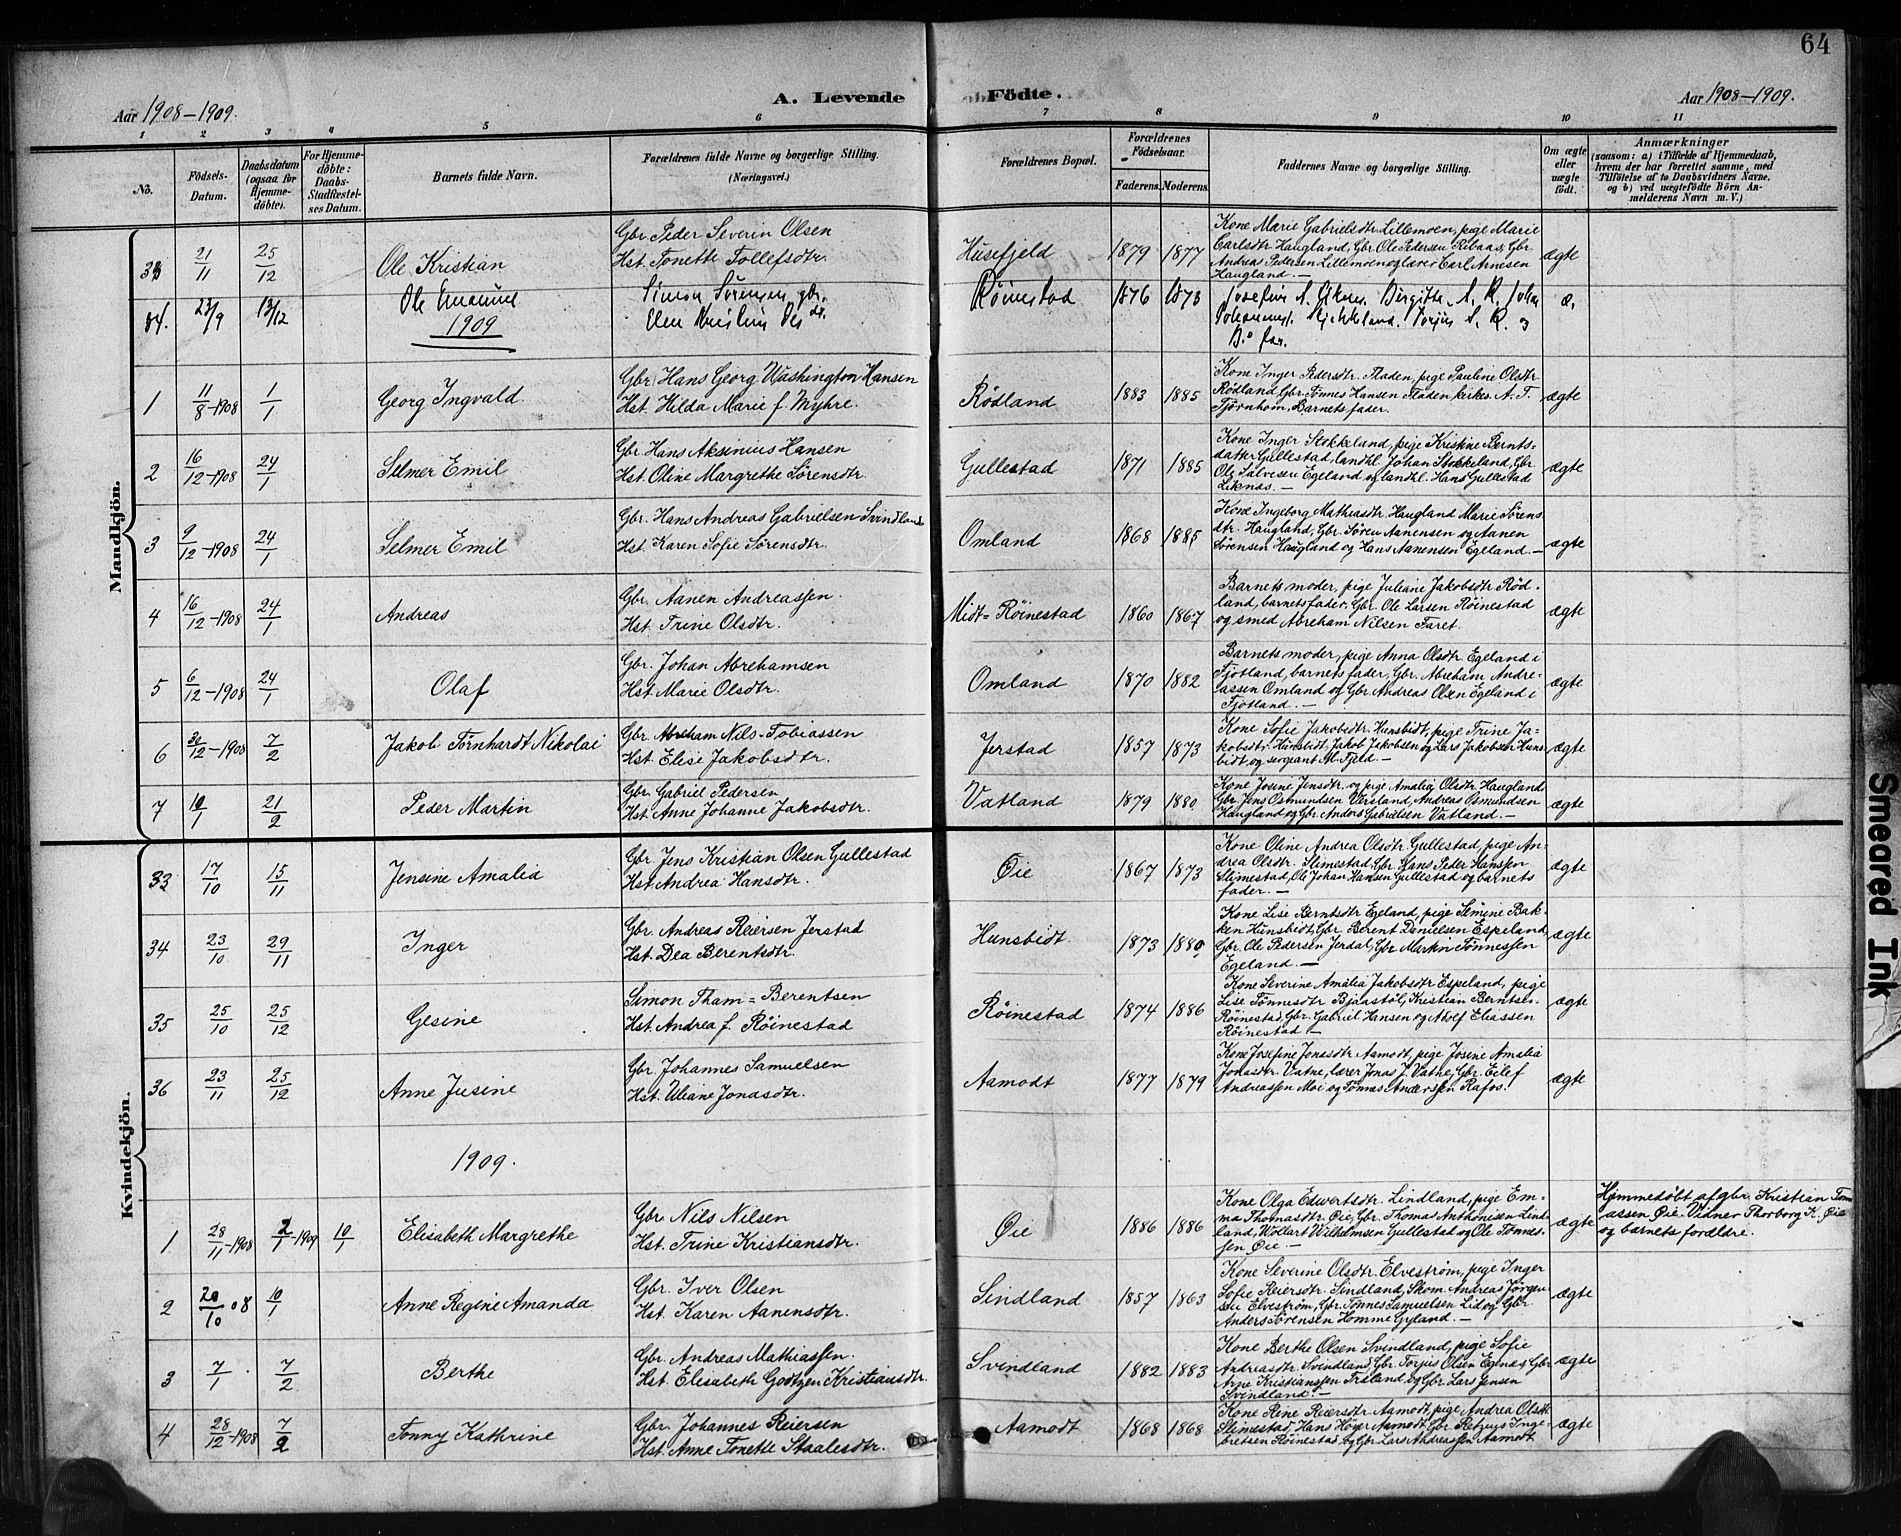 64
Aar 1908-1909.
A. Levende Födte.
Aar 1908-1909.
1 2 3 4 5 6 7 8 9 10 11
No.
Födsels-Datum.
Daabsdatum (ogsaa for Hjemme-döbte).
For Hjemme-döbte: Daabs-Stadfæstel-ses Datum.
Barnets fulde Navn.
Forældrenes fulde Navne og borgerlige Stilling. (Næringsvei.)
Forældrenes Bopæl.
Forældrenes Födselsaar.
Faderens. Moderens.
Faddernes Navne og borgerlige Stilling.
Om ægte eller uægte födt.
Anmærkninger
(saasom: a) i Tilfælde af Hjemmedaab, hvem der har forrettet samme, med Tilföielse af to Daabsvidners Navne, og b) ved uægtefödte Börn An-melderens Navn m. V.)
Mandkjön.
33 21/11 25/12 Ole Kristian
Gbr. Peder Severin Olsen
Hst. Tonette Tollefsdtr.
Husefjeld 1879 1877
Kone Marie Gabrielsdtr. Lillemoen, pige Marie
Carlsdtr. Haugland, Gbr. Ole Pedersen Ribaas, Gbr.
Andreas Pedersen Lillemoen og lærer Carl Arnesen
Haugland.—
ægte
34. 23/9 13/12 Ole Emanuel
Simon Sørensen gbr.
Røinestad 1876 1873
æ.
1909
1 11/8-1908 1/1 Georg Ingvald
Gbr. Hans Georg Washington Hansen
Hst. Hilda Marie f. Myhre.
Rödland 1883 1885
Kone Inger Pedersdtr. Fladen, pige Pauline Olsdtr.
Rödland, Gbr. Tönnes Hansen Fladen, kirkes. A. T.
Tjörnhom, Barnets fader.
ægte
2 16/12-1908 24/1 Selmer Emil
Gbr. Hans Aksinius Hansen
Hst. Oline Margrethe Sörensdtr.
Gullestad 1871 1885
Kone Inger Stokkeland, pige Kristine Bernts-
datter Gullestad, landhl. Johan Stokkeland, Gbr.
Ole Salvesen Egeland og landhl. Hans Gullestad
Liknæs.—
ægte
3 9/12-1908 24/1 Selmer Emil
Gbr. Hans Andreas Gabrielsen Svindland
Hst. Karen Sofie Sörensdtr.
Omland 1868 1885
Kone Ingeborg Mathiasdtr. Haugland Marie Sörens
dtr. Haugland, Gbr. Sören Aanensen og Aanen
Sörensen Haugland og Hans Aanensen Egeland.—
ægte
4 16/12-1908 24/1 Andreas
Gbr. Aanen Andreassen.
Hst. Trine Olsdtr.
Midt-Röinestad 1860 1867
Barnets moder, pige Juliane Jakobsdtr. Röd-
land, barnets fader, Gbr. Ole Larsen Röinestad
og smed Abreham Nilsen Faret.
ægte
5 6/12-1908 24/1 Olaf
Gbr. Johan Abrehamsen
Hst. Marie Olsdtr.
Omland 1870 1882
Barnets moder, pige Anna Olsdtr. Egeland i
Fjotland, barnets fader, Gbr. Abreham Andre-
assen Omland og Gbr. Andreas Olsen Egeland i
Fjotland.—
ægte
6 30/12-1908 7/2 Jakob Törnhardt Nikolai
Gbr. Abreham Nils-Tobiassen
Hst. Elise Jakobsdtr.
Jerstad 1857 1873
Kone Sofie Jakobsdtr. Hunsbidt, pige Trine Ja-
kobsdtr. Hunsbidt, Jakob Jakobsen og Lars Jakobsen Huns-
bidt og sergeant M. Fjeld.—
ægte
7 10/1 21/2 Peder Martin
Gbr. Gabriel Pedersen
Hst. Anne Johanne Jakobsdtr.
Vatland 1879 1880
Kone Josine Jensdtr. og pige Amalia Olsdtr. Haugland
Gbr. Jens Osmundsen Versland, Andreas Osmundsen
Haugland og Gbr. Anders Gabrielsen Vatland.—
ægte
Kvindekjön.
33 17/10 15/11 Jensine Amalia
Gbr. Jens Kristian Olsen Gullestad
Hst. Andrea Hansdtr.
Öie 1867 1873
Kone Oline Andrea Olsdtr. Gullestad, pige An-
drea Olsdtr. Slimestad, Gbr. Hans Peder Hanssen
Slimestad, Ole Johan Hansen Gullestad og barnets
fader.—
ægte
34 23/10 29/11 Inger
Gbr. Andreas Reiersen Jerstad
Hst. Dea Berentsdtr.
Hunsbidt. 1873 1880
Kone Lise Berntsdtr. Egeland, pige Semine Bak-
ken Hunsbidt, Gbr. Berent Danielsen Espeland,
Gbr. Ole Pedersen Jerdal, Gbr. Martin Tönnessen
Egeland.—
ægte
35 25/10 25/12 Gesine
Simon Tham-Berentsen
Hst. Andrea f. Röinestad
Röinestad 1874 1886
Kone Severine Amalia Jakobsdtr. Espeland, pige
Lise Tönnesdtr. Bjaastöl, Kristian Berntsen
Röinestad, Gbr. Gabriel Hansen og Adolf Eliassen
Röinestad —
ægte
36 23/11 25/12 Anne Jusine
Gbr. Johannes Samuelsen
Hst. Uliane Jonasdtr.
Aamodt 1877 1879
Kone Josefine Jonasdtr. Aamodt, pige Josine Amalia
Jonasdtr. Vatne, lærer Jonas J. Vatne, Gbr. Eilef
Andreassen Moi og Tönnes Anderssen Rafos.
ægte
1909.
1 28/11-1908 2/1-1909 10/1 Elisabeth Margrethe
Gbr. Nils Nilsen
Hst. Trine Kristiansdtr.
Öie 1886 1886
Kone Olga Edvertsdtr. Lindland, pige Em-
ma Thomasdtr. Öie, Gbr. Thomas Anthonisen Lind-
land, Wollart Vilhelmsen Gullestad og Ole Tönnes-
sen Öie —
ægte
Hjemmedöbt af gbr. Kristian Tom
assen Öie. Vidner Thorborg K. Öie
og barnets forældre.
2 20/10 08 10/1 Anne Regine Amanda
Gbr. Iver Olsen
Hst. Karen Aanensdtr.
Sindland 1857 1863
Kone Severine Olsdtr. Elveström, pige Inger
Sofie Reiersdtr. Sindland, Skom. Andreas Jörgen-
sen Elveström, Gbr. Tönnes Samuelsen Lid og Gbr.
Anders Sörensen Homme Gyland.—
ægte
3 7/1 7/2 Berthe
Gbr. Andreas Mathiassen.
Hst. Elisabeth Godtzen Kristiansdtr.
Svindland 1882 1883
Kone Berthe Olsen Svindland, pige Sofie
Andreasdtr. Svindland, Gbr. Torjus Olsen Egenæs, Gbr.
Arne Kristianssen Træland og Gbr. Lars Jensen
Svindland.—
ægte
4 28/12-1908 7/2 Tonny Kathrine
Gbr. Johannes Reiersen
Hst. Anne Tonette Staalesdtr.
Aamodt 1868 1868
Kone Rene Reiersdtr. Aamodt, pige Andrea Olsdtr.
Slimestad, Hans Höyer Aamodt, Gbr. Retzius Inge-
bretsen Röinestad og Gbr. Lars Andreassen Aamodt
ægte
Smeared Ink